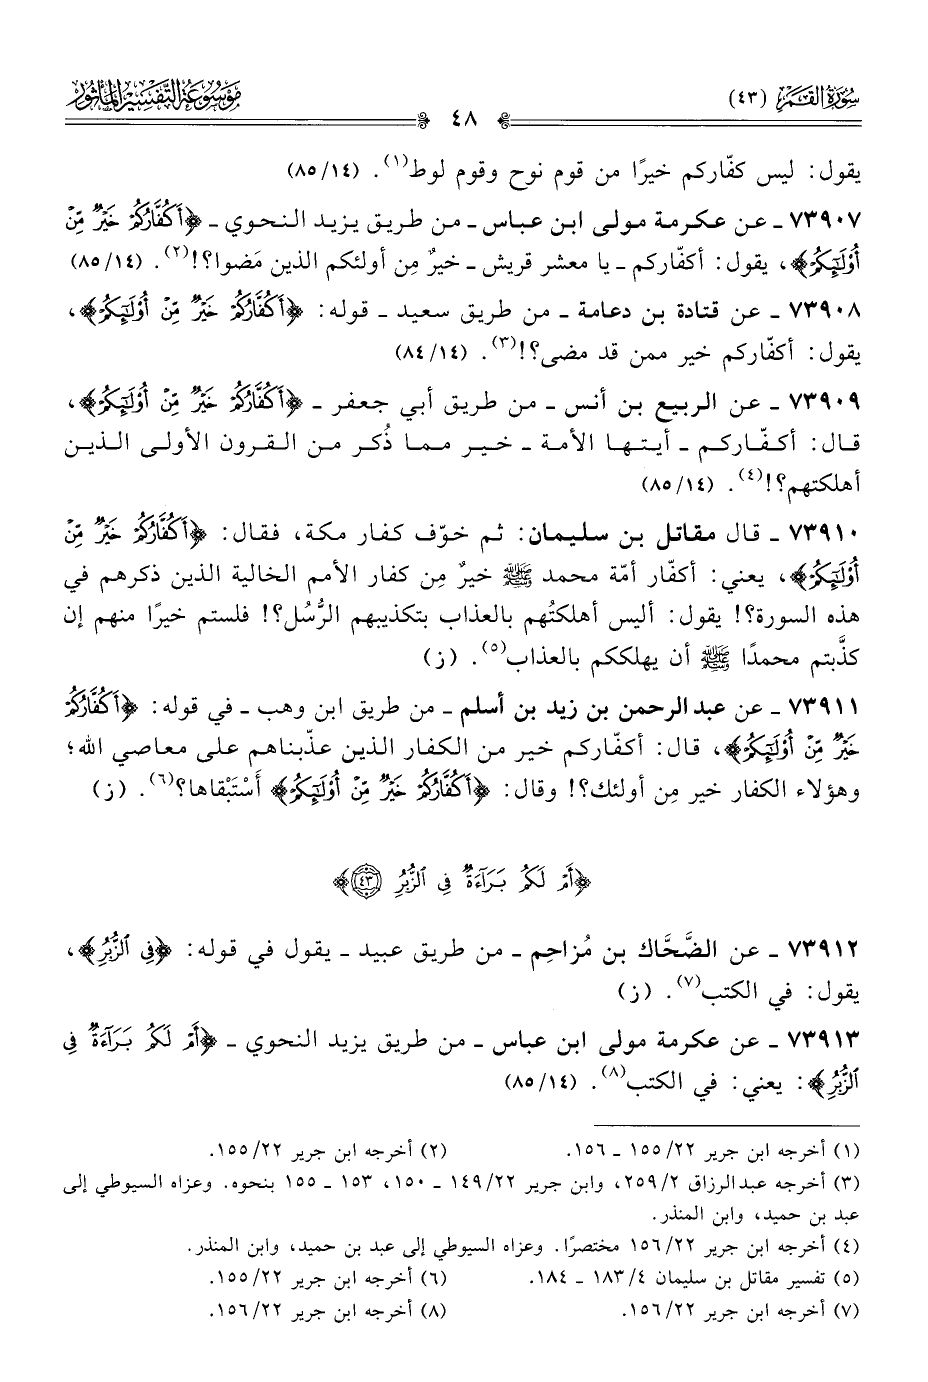 سورة القمر (٤٣)
٤٨
موسوعة التفسير المأثور
يقول: ليس كفّاركم خيرًا من قوم نوح وقوم لوط(١). (١٤/ ٨٥)
٧٣٩٠٧ ـ عن عكرمة مولى ابن عباس ـ من طريق يزيد النحوي ـ ﴿أَكُفَّارُكُمْ خَيْرٌ مِّنْ
أُوْلَٰٓئِكُمْ﴾، يقول: أكفّاركم ـ يا معشر قريش ـ خيرٌ مِن أولئكم الذين مَضَوا؟!(٢). (١٤/ ٨٥)
٧٣٩٠٨ ـ عن قتادة بن دعامة ـ من طريق سعيد ـ قوله: ﴿أَكُفَّارُكُمْ خَيْرٌ مِّنْ أُوْلَٰٓئِكُمْ﴾،
يقول: أكفّاركم خير ممن قد مضى؟!(٣). (١٤/ ٨٤)
٧٣٩٠٩ ـ عن الربيع بن أنس ـ من طريق أبي جعفر ـ ﴿أَكُفَّارُكُمْ خَيْرٌ مِّنْ أُوْلَٰٓئِكُمْ﴾،
قال: أكفّاركم ـ أيتها الأمة ـ خير مما ذُكر من القرون الأولى الذين
أهلكتهم؟!(٤). (١٤/ ٨٥)
٧٣٩١٠ ـ قال مقاتل بن سليمان: ثم خوّف كفار مكة، فقال: ﴿أَكُفَّارُكُمْ خَيْرٌ مِّنْ
أُوْلَٰٓئِكُمْ﴾، يعني: أكفّار أمّة محمد ﷺ خيرٌ مِن كفار الأمم الخالية الذين ذكرهم في
هذه السورة؟! يقول: أليس أهلكتُهم بالعذاب بتكذيبهم الرُّسُل؟! فلستم خيرًا منهم إن
كذَّبتم محمدًا ﷺ أن يهلككم بالعذاب(٥). (ز)
٧٣٩١١ ـ عن عبد الرحمن بن زيد بن أسلم ـ من طريق ابن وهب ـ في قوله: ﴿أَكُفَّارُكُمْ
خَيْرٌ مِّنْ أُوْلَٰٓئِكُمْ﴾، قال: أكفّاركم خير من الكفار الذين عذّبناهم على معاصي الله؛
وهؤلاء الكفار خير مِن أولئك؟! وقال: ﴿أَكُفَّارُكُمْ خَيْرٌ مِّنْ أُوْلَٰٓئِكُمْ﴾ أَسْتَبْقاها؟(٦). (ز)
﴿أَمْ لَكُم بَرَآءَةٌ فِى ٱلزُّبُرِ ٤٣﴾
٧٣٩١٢ ـ عن الضَّحَّاك بن مُزاحِم ـ من طريق عبيد ـ يقول في قوله: ﴿فِى ٱلزُّبُرِ﴾،
يقول: في الكتب(٧). (ز)
٧٣٩١٣ ـ عن عكرمة مولى ابن عباس ـ من طريق يزيد النحوي ـ ﴿أَمْ لَكُم بَرَآءَةٌ فِى
ٱلزُّبُرِ﴾: يعني: في الكتب(٨). (١٤/ ٨٥)
(١) أخرجه ابن جرير ٢٢/ ١٥٥ ـ ١٥٦. (٢) أخرجه ابن جرير ٢٢/ ١٥٥.
(٣) أخرجه عبد الرزاق ٢/ ٢٥٩، وابن جرير ٢٢/ ١٤٩ ـ ١٥٠، ١٥٣ ـ ١٥٥ بنحوه. وعزاه السيوطي إلى
عبد بن حميد، وابن المنذر.
(٤) أخرجه ابن جرير ٢٢/ ١٥٦ مختصرًا. وعزاه السيوطي إلى عبد بن حميد، وابن المنذر.
(٥) تفسير مقاتل بن سليمان ٤/ ١٨٣ ـ ١٨٤. (٦) أخرجه ابن جرير ٢٢/ ١٥٥.
(٧) أخرجه ابن جرير ٢٢/ ١٥٦. (٨) أخرجه ابن جرير ٢٢/ ١٥٦.